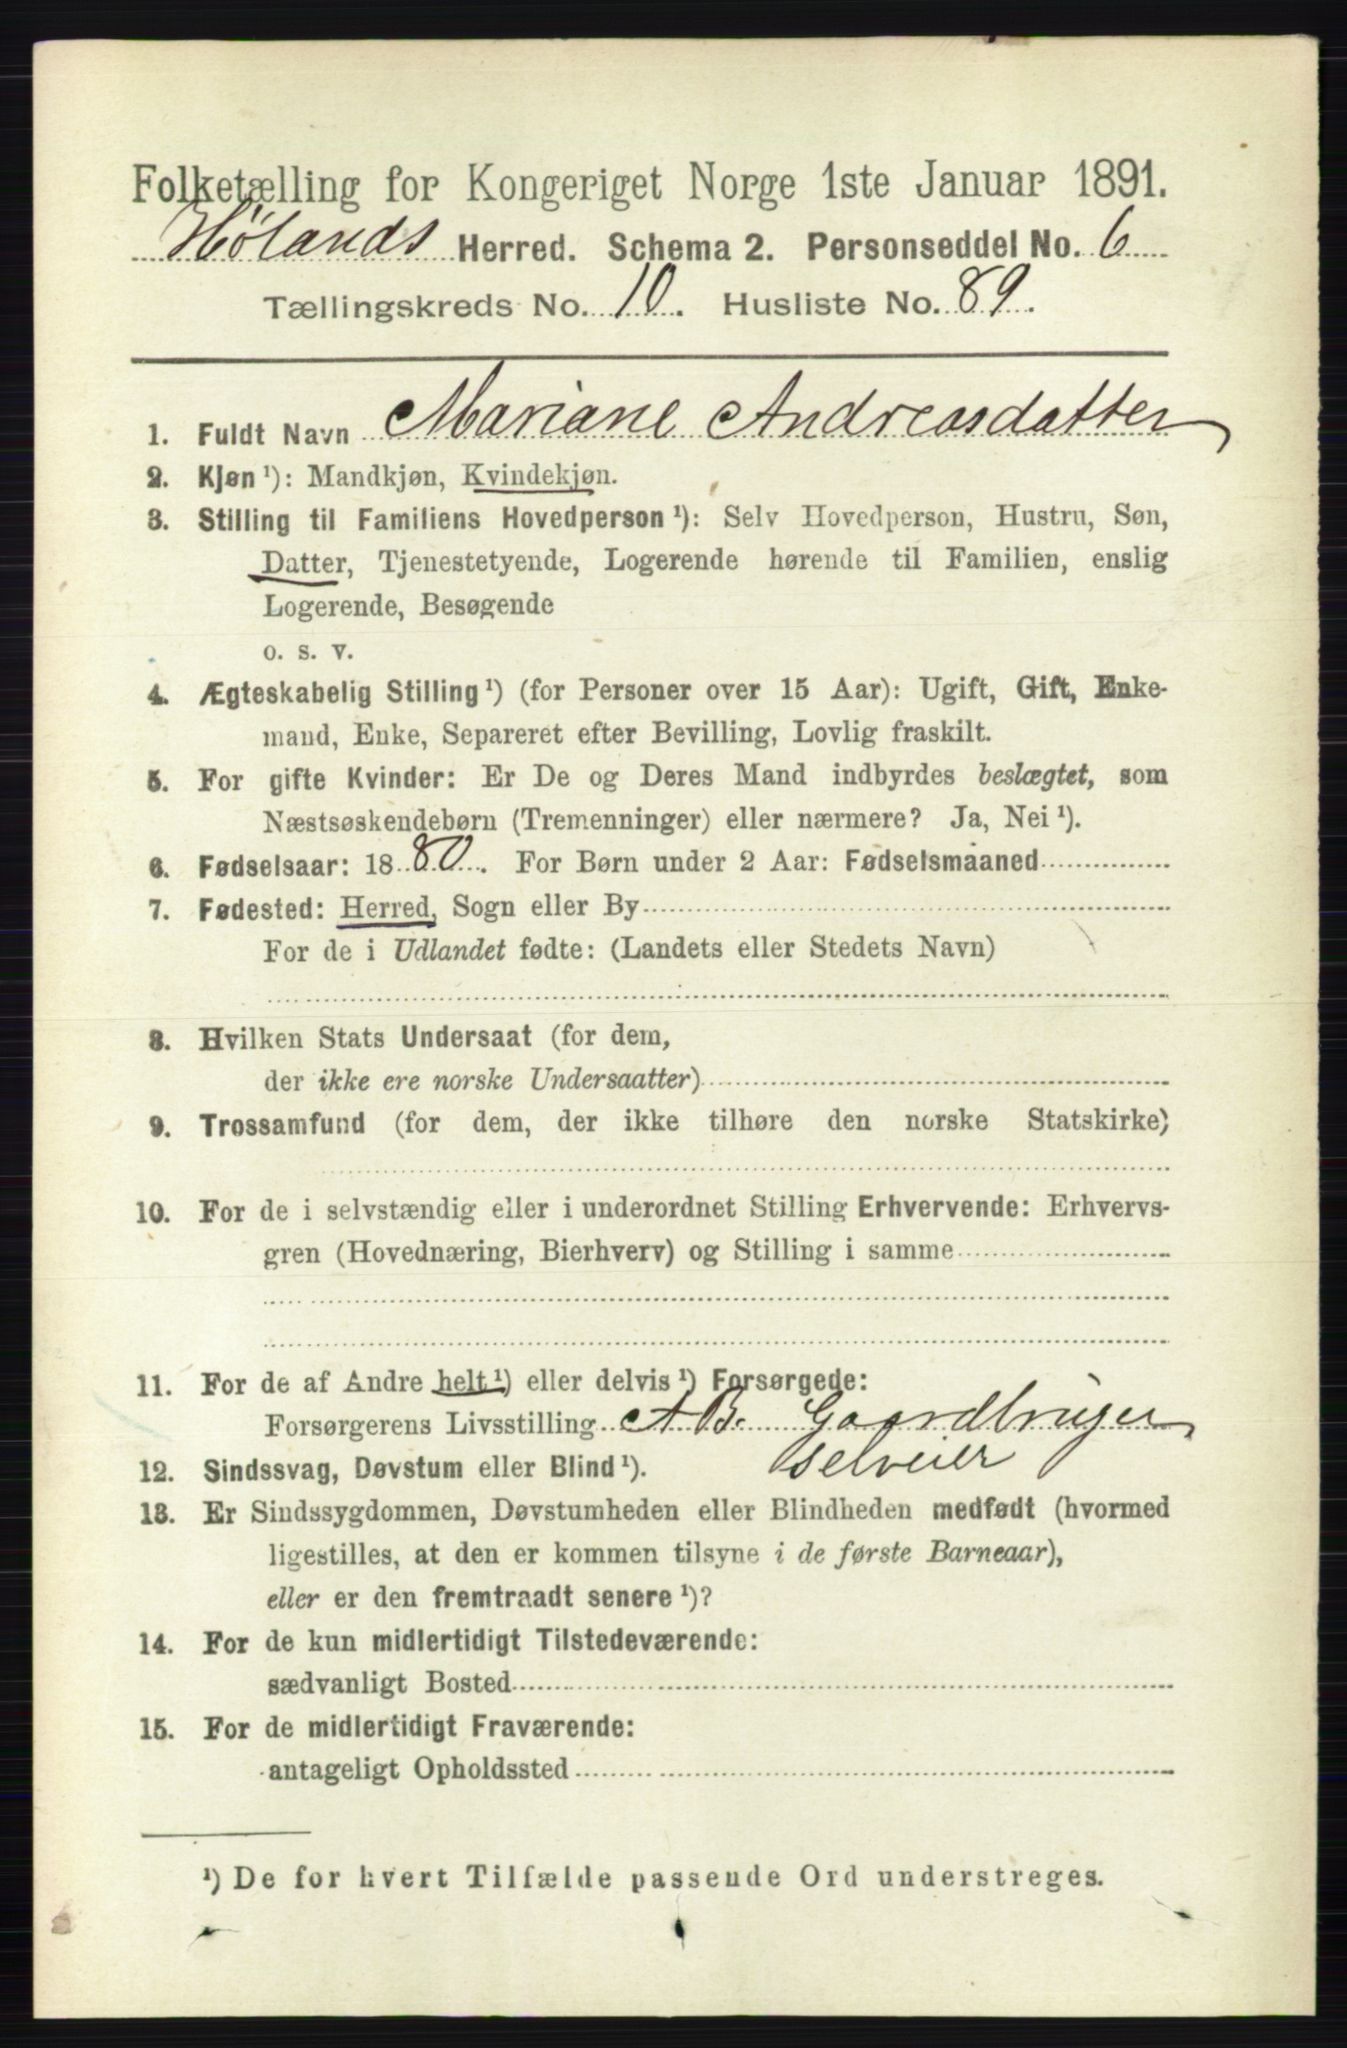 Folketælling for Kongeriget Norge 1ste Januar 1891.
Hølands Herred. Schema 2. Personseddel No. 6
Tællingskreds No. 10. Husliste No. 89.
1. Fuldt Navn Mariane Andreasdatter
2. Kjøn ¹): Mandkjøn, Kvindekjøn.
3. Stilling til Familiens Hovedperson ¹): Selv Hovedperson, Hustru, Søn,
Datter, Tjenestetyende, Logerende hørende til Familien, enslig
Logerende, Besøgende
o. s. v.
4. Ægteskabelig Stilling ¹) (for Personer over 15 Aar): Ugift, Gift, Enke-
mand, Enke, Separeret efter Bevilling, Lovlig fraskilt.
5. For gifte Kvinder: Er De og Deres Mand indbyrdes beslægtet, som
Næstsøskendebørn (Tremenninger) eller nærmere? Ja, Nei ¹).
6. Fødselsaar: 1880. For Børn under 2 Aar: Fødselsmaaned
7. Fødested: Herred, Sogn eller By
For de i Udlandet fødte: (Landets eller Stedets Navn)
8. Hvilken Stats Undersaat (for dem,
der ikke ere norske Undersaatter)
9. Trossamfund (for dem, der ikke tilhøre den norske Statskirke)
10. For de i selvstændig eller i underordnet Stilling Erhvervende: Erhvervs-
gren (Hovednæring, Bierhverv) og Stilling i samme
11. For de af Andre helt ¹) eller delvis ¹) Forsørgede:
Forsørgerens Livsstilling A B. Gaardbruger
selveier
12. Sindssvag, Døvstum eller Blind ¹).
13. Er Sindssygdommen, Døvstumheden eller Blindheden medfødt (hvormed
ligestilles, at den er kommen tilsyne i de første Barneaar),
eller er den fremtraadt senere ¹)?
14. For de kun midlertidigt Tilstedeværende:
sædvanligt Bosted
15. For de midlertidigt Fraværende:
antageligt Opholdssted
¹) De for hvert Tilfælde passende Ord understreges.